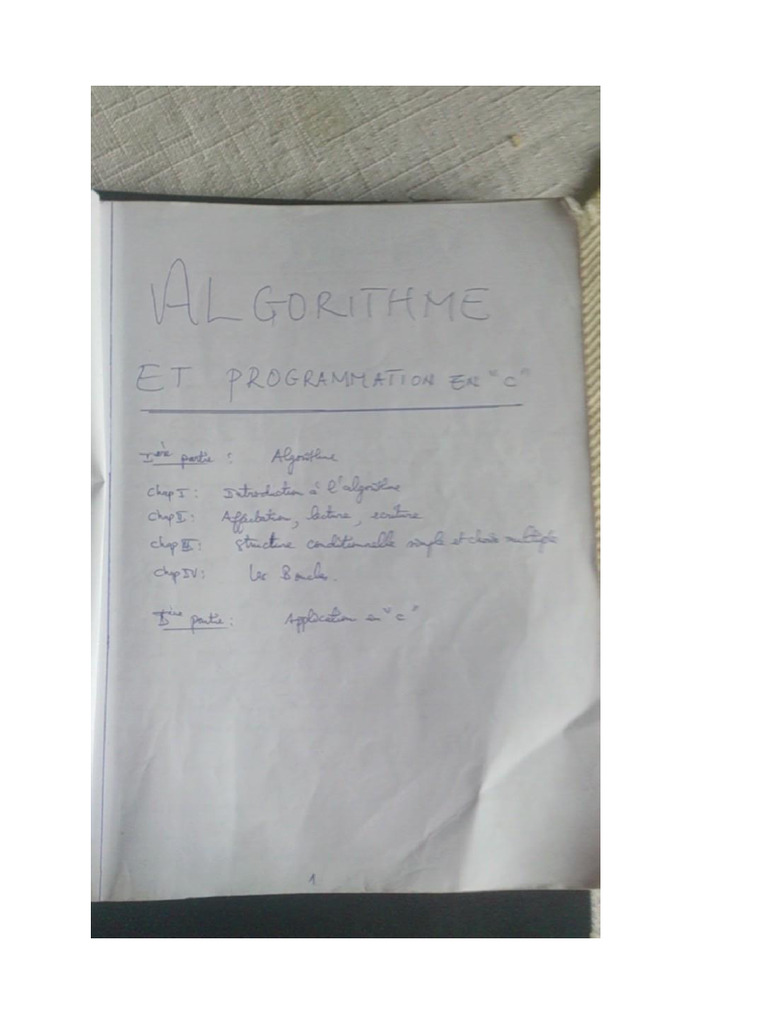 ALGORITHME
ET PROGRAMMATION EN "C"
Ière partie : Algorithme
Chap I : Introduction à l'algorithme
Chap II : Affectation, lecture, ecriture
Chap III : Structure conditionnelle simple et choix multiple
Chap IV : Les Boucles.
IIère partie : Application en "C"
1